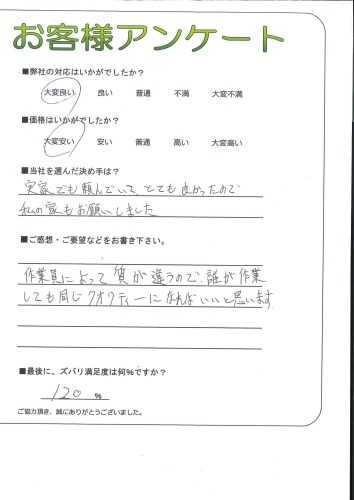 お客様アンケート
■弊社の対応はいかがでしたか?
大変良い 良い 普通 不満 大変不満
■価格はいかがでしたか?
大変安い 安い 普通 高い 大変高い
■当社を選んだ決め手は?
実家でも頼んでいて、とても良かったので
私の家もお願いしました
■ご感想・ご要望などをお書き下さい。
作業員によって質が違うので、誰が作業
しても同じクオリティーになればいいと思います。
■最後に、ズバリ満足度は何%ですか?
120 %
ご協力頂き、誠にありがとうございました。